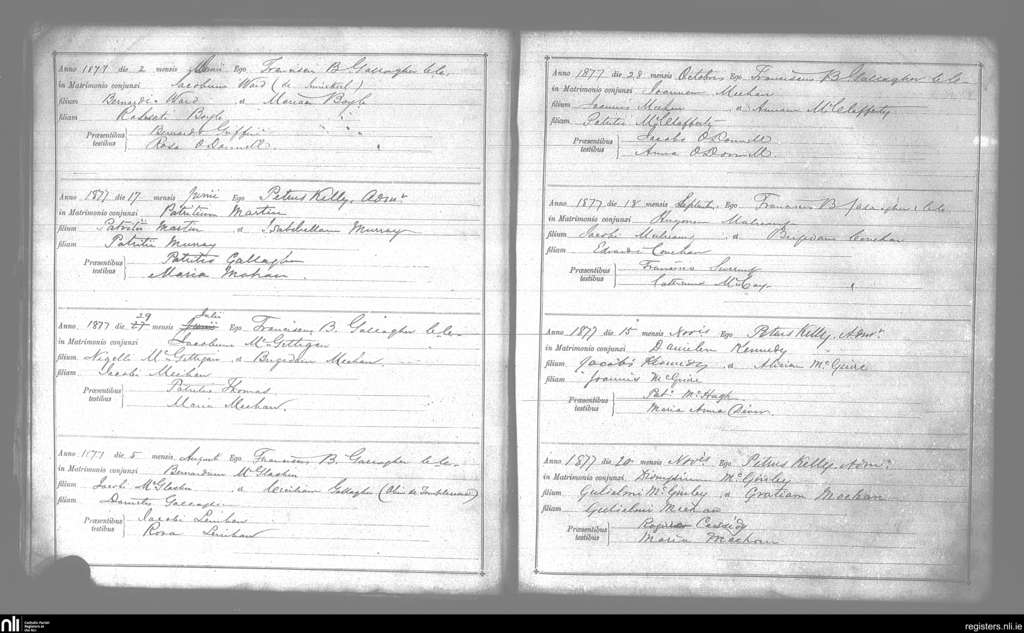 Anno 1877 die 2 mensis Junii Ego Franciscus B Gallagher C.C.
in Matrimonio conjunxi Jacobum Ward (de
filium Bernardi Ward a Mariam Boyle
filiam Roberti Boyle
Præsentibus testibus Bernardo Griffin
Rosa O'Donnell
Anno 1877 die 17 mensis Junii Ego Petrus Kelly. Admr
in Matrimonio conjunxi Patritium Martin
filium Patritii Martin a Isabellam Murray
filiam Patritii Murray
Præsentibus testibus Patritio Gallagher
Maria Mohan
Anno 1877 die 29 mensis Julii Ego Franciscus B. Gallagher C.C.
in Matrimonio conjunxi Jacobum McGettigan
filium Nigelli McGettigan a Brigidam Meehan
filiam Jacobi Meehan
Præsentibus testibus Patritio Thomas
Maria Meehan.
Anno 1877 die 5 mensis August Ego Franciscus B. Gallagher C.C.
in Matrimonio conjunxi Bernardum McGlashin
filium Jacobi McGlashin a Gallagher (Olim de
filiam Gallagher
Præsentibus testibus Jacobo
Rosa
Anno 1877 die 28 mensis Octobris Ego Franciscus B Gallagher C.C.
in Matrimonio conjunxi Joannem Meehan
filium Joannis Meehan a Annam McClafferty
filiam Patritii McClafferty
Præsentibus testibus Jacobo O'Donnell
Anna O'Donnell
Anno 1877 die 18 mensis Septemb. Ego Franciscus B Gallagher C.C.
in Matrimonio conjunxi Hugonem
filium Jacobi a Brigidam
filiam Edwardi
Præsentibus testibus Francisco
Catterina McCoy
Anno 1877 die 15 mensis Novis Ego Petrus Kelly. Admr
in Matrimonio conjunxi Danielem Kennedy
filium Jacobi Kennedy a McGuire
filiam Joannis McGuire
Præsentibus testibus Patk McHugh
Maria Anna
Anno 1877 die 20 mensis Novis Ego Petrus Kelly. Admr
in Matrimonio conjunxi McGinley
filium Gulielmi McGinley a Gratiam Meehan
filiam Gulielmi Meehan
Præsentibus testibus Rogerio Cassidy
Maria Meehan
nli Catholic Parish Registers at the NLI
registers.nli.ie